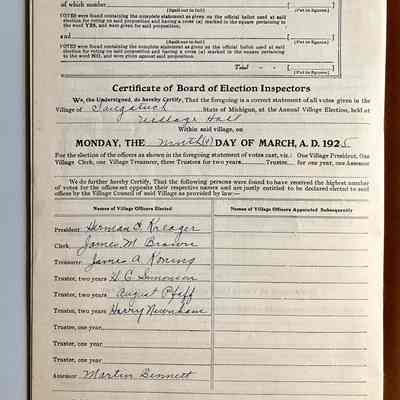 of which number
(Put in words) (Put in figures)
VOTES were found containing the complete statement as given on the official ballot used at said
election for voting on said proposition and having a cross (x) marked in the square pertaining to
the word YES, and were given for said proposition;
and
(Put in words) (Put in figures)
VOTES were found containing the complete statement as given on the official ballot used at said
election for voting on said proposition and having a cross (x) marked in the square pertaining
to the word NO, and were given against said proposition.
Total
(Put in figures)
Certificate of Board of Election Inspectors
We, the Undersigned, do hereby Certify, That the foregoing is a correct statement of all votes given in the
Village of Saugatuck State of Michigan, at the Annual Village Election, held at
Village Hall
Within said village, on
MONDAY, THE Ninth (9) DAY OF MARCH, A. D. 1925
For the election of the officers as shown in the foregoing statement of votes cast, viz.: One Village President, One
Village Clerk, one Village Treasurer, three Trustees for two years, Trustee, for one year, one Assessor
We do further hereby Certify, That the following persons were found to have received the highest number
of votes for the offices set opposite their respective names and are justly entitled to be declared elected to said
offices by the Village Council of said Village as provided by law:—
Names of Village Officers Elected Names of Village Officers Appointed Subsequently
President Herman F. Kreager
Clerk James M Brown
Treasurer James A Koning
Trustee, two years H C Simonson
Trustee, two years August Pfaff
Trustee, two years Harry Newnham
Trustee, one year
Trustee, one year
Trustee, one year
Assessor Martin Bennett